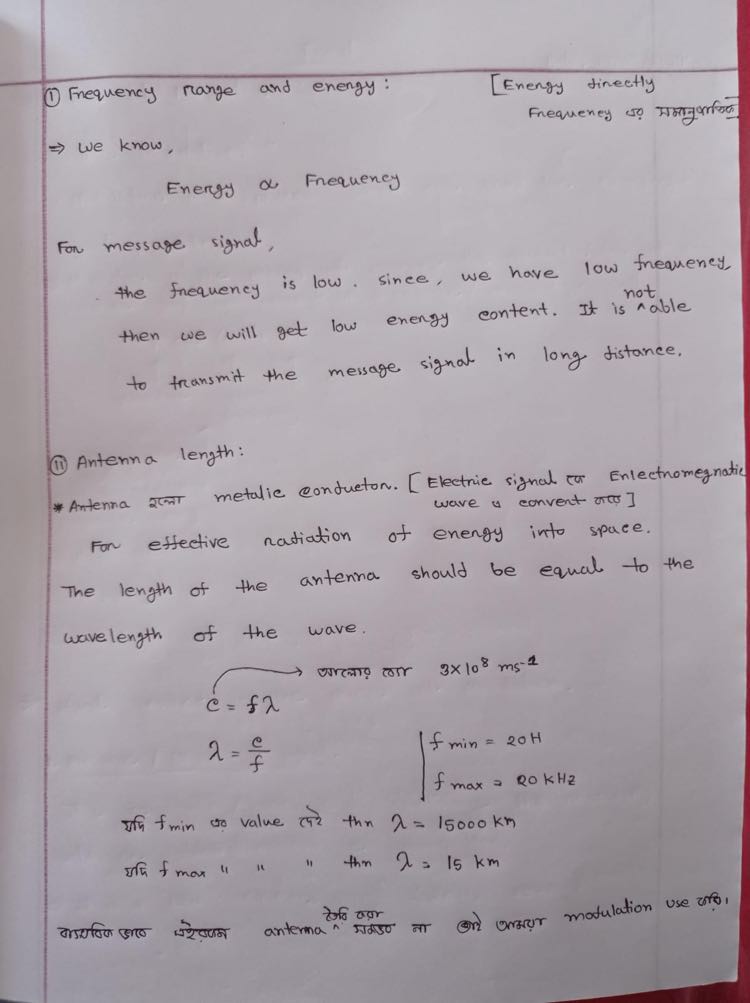 ① Frequency range and energy:
[Energy directly
Frequency এর সমানুপাতিক]
⇒ We know,
Energy ∝ Frequency
For message signal,
the frequency is low. since, we have low frequency
then we will get low energy content. It is not able
to transmit the message signal in long distance.
⑪ Antenna length:
* Antenna হলো metalic conductor. [Electric signal কে Enlectromegnatic
wave এ convert করে]
For effective radiation of energy into space.
The length of the antenna should be equal to the
wavelength of the wave.
আলোর বেগ 3×10⁸ ms⁻¹
c = fλ
λ = c/f
f min = 20H
f max = 20 kHz
যদি f min এর value নেই thn λ = 15000 km
যদি f max " " " thn λ = 15 km
বাস্তবিক ভাবে এইরকম antenna তৈরি করা সম্ভব না তাই আমরা modulation use করি।